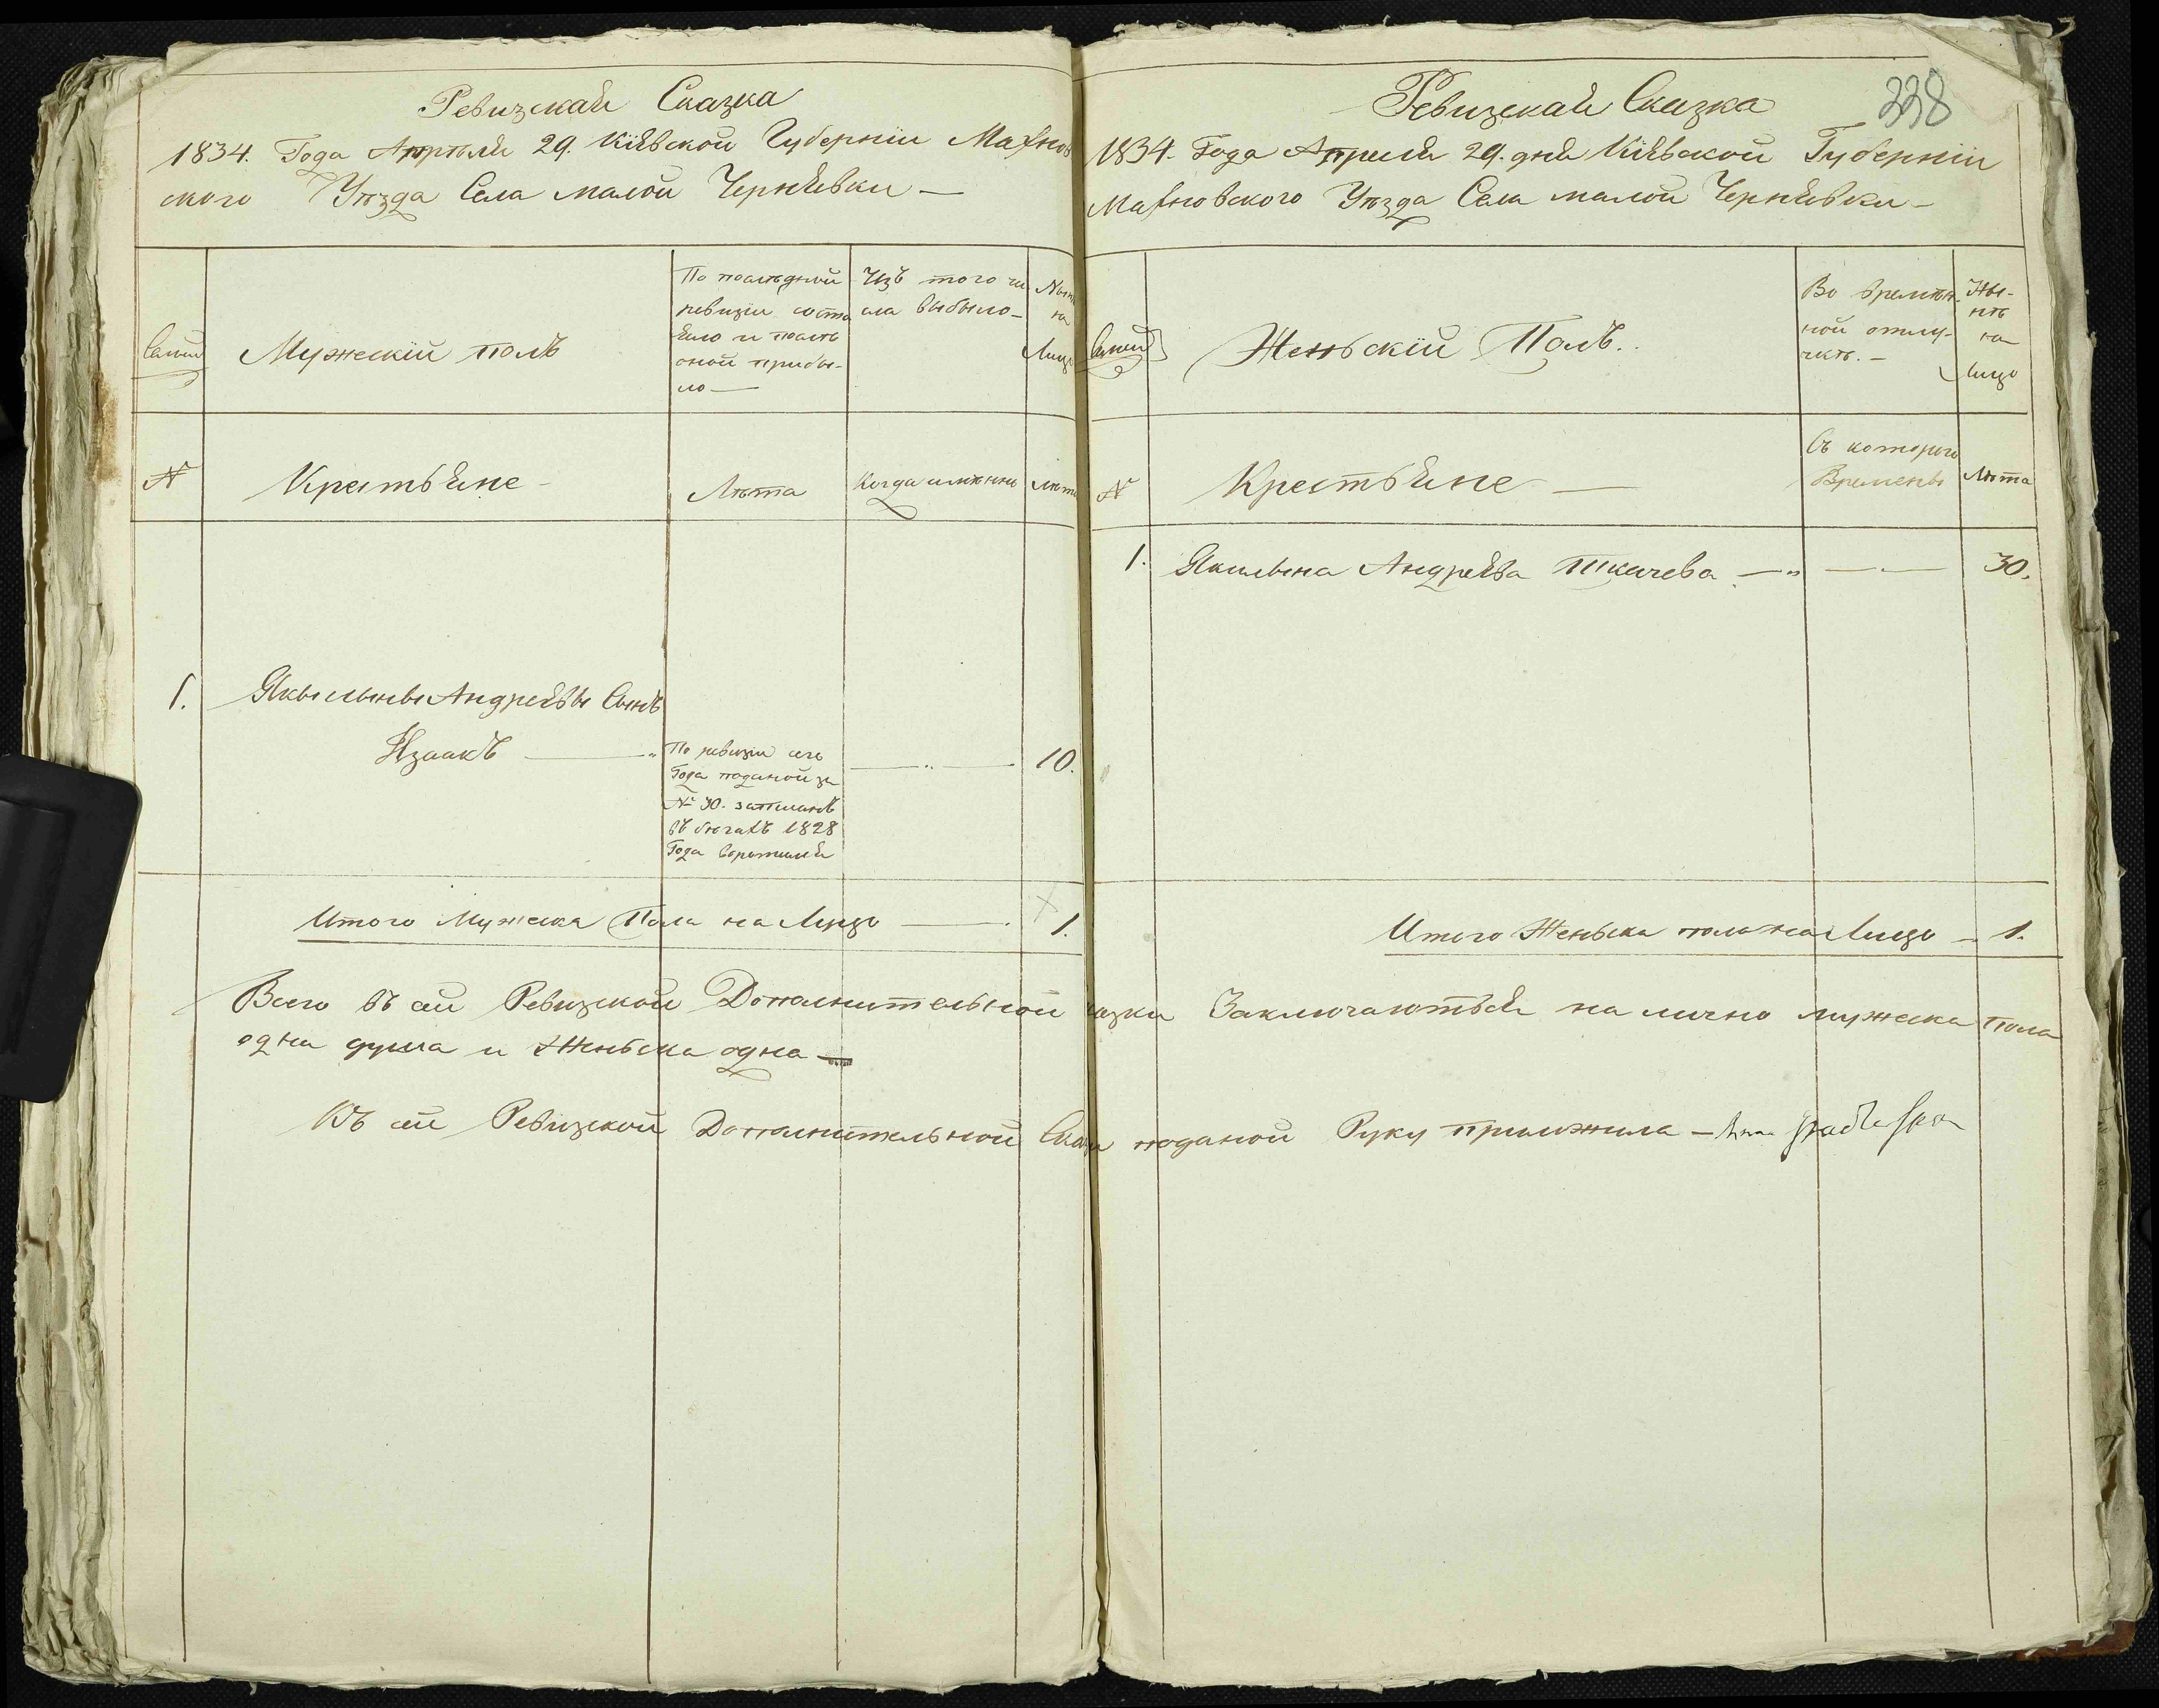 Ревизская Сказка
1834. Года Апреля 29. Кіевской Губерніи Махнов
ского Уѣзда Села малой Чернявки —
Семьи
Мужескій полъ
По послѣдней
ревизіи состо
яло и послѣ
оной прибы-
ло —
Изъ того чи
сла выбыло —
Нынѣ
на
Лицо
N
Крестьяне -
Лѣта
Когда имянно
лѣта
1.
Якылыны Андреевы Сынъ
Изаакъ — "
По ревизіи сего
Года поданой за
№ 30. записанъ
въ бегахъ 1828
Года
— " —
10.
Итого Мужеска Пола на Лицо — 1.
338
Ревизская Сказка
1834. Года Апреля 29. дня Кіевской Губерніи
Махновского Уѣзда Села малой Чернявки -
Семьи
Женьскій Полъ.
Во времян-
ной отлу-
чкѣ. -
Ны-
нѣ
на
лицо
N
Крестьяне —
Съ которого
Времены
Лѣта
1.
Якилына Андреева Ткачева — "
— . —
30.
Итого Женьска пола на Лицо — 1.
Всего въ сей Ревизской Дополнительной казки Заключаются на лично мужеска пола
одна душа и Женьска одна —
Къ сей Ревизской Дополнительной Сказки поданой Руку приложила —